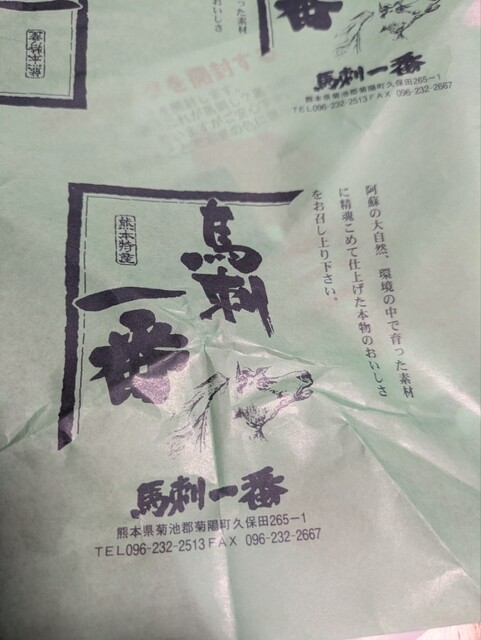 熊本特産
た素材
おいしさ
一番
馬刺一番
熊本県菊池郡菊陽町久保田265-1
TEL096-232-2513 FAX 096-232-2667
阿蘇の大自然、環境の中で育った素材
に精魂こめて仕上げた本物のおいしさ
をお召し上り下さい。
馬刺
一番
熊本特産
馬刺一番
熊本県菊池郡菊陽町久保田265-1
TEL096-232-2513 FAX 096-232-2667